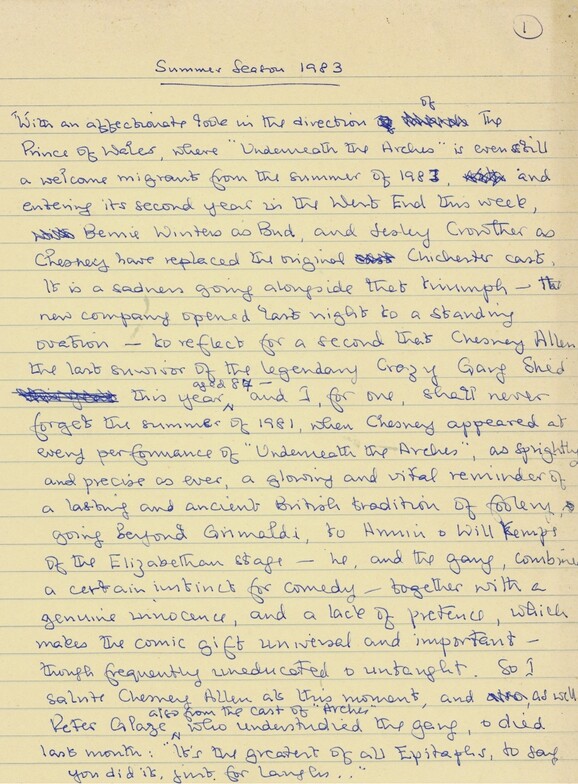 1
Summer Season 1983
With an affectionate look in the direction of the
Prince of Wales, where "Underneath the Arches" is even still
a welcome migrant from the summer of 1981, and
entering its second year in the West End this week,
Bernie Winters as Bud, and Lesley Crowther as
Chesney have replaced the original Chichester cast.
It is a sadness going alongside that triumph – the
new company opened last night to a standing
ovation – to reflect for a second that Chesney Allen
the last survivor of the legendary Crazy Gang Died
this year aged 87 – and I, for one, shall never
forget the summer of 1981, when Chesney appeared at
every performance of "Underneath the Arches", as sprightly
and precise as ever, a glowing and vital reminder of
a lasting and ancient British tradition of foolery,
going beyond Grimaldi, to Armin & Will Kempe
of the Elizabethan stage – he, and the gang, combine
a certain instinct for comedy – together with a
genuine innocence, and a lack of pretence, which
makes the comic gift universal and important –
though frequently uneducated & untaught. So I
salute Chesney Allen at this moment, and as well
Peter Glaze, also from the cast of "Arches" who understudied the gang, & died
last month: "It's the greatest of all Epitaphs, to say
you did it, just for laughs..."